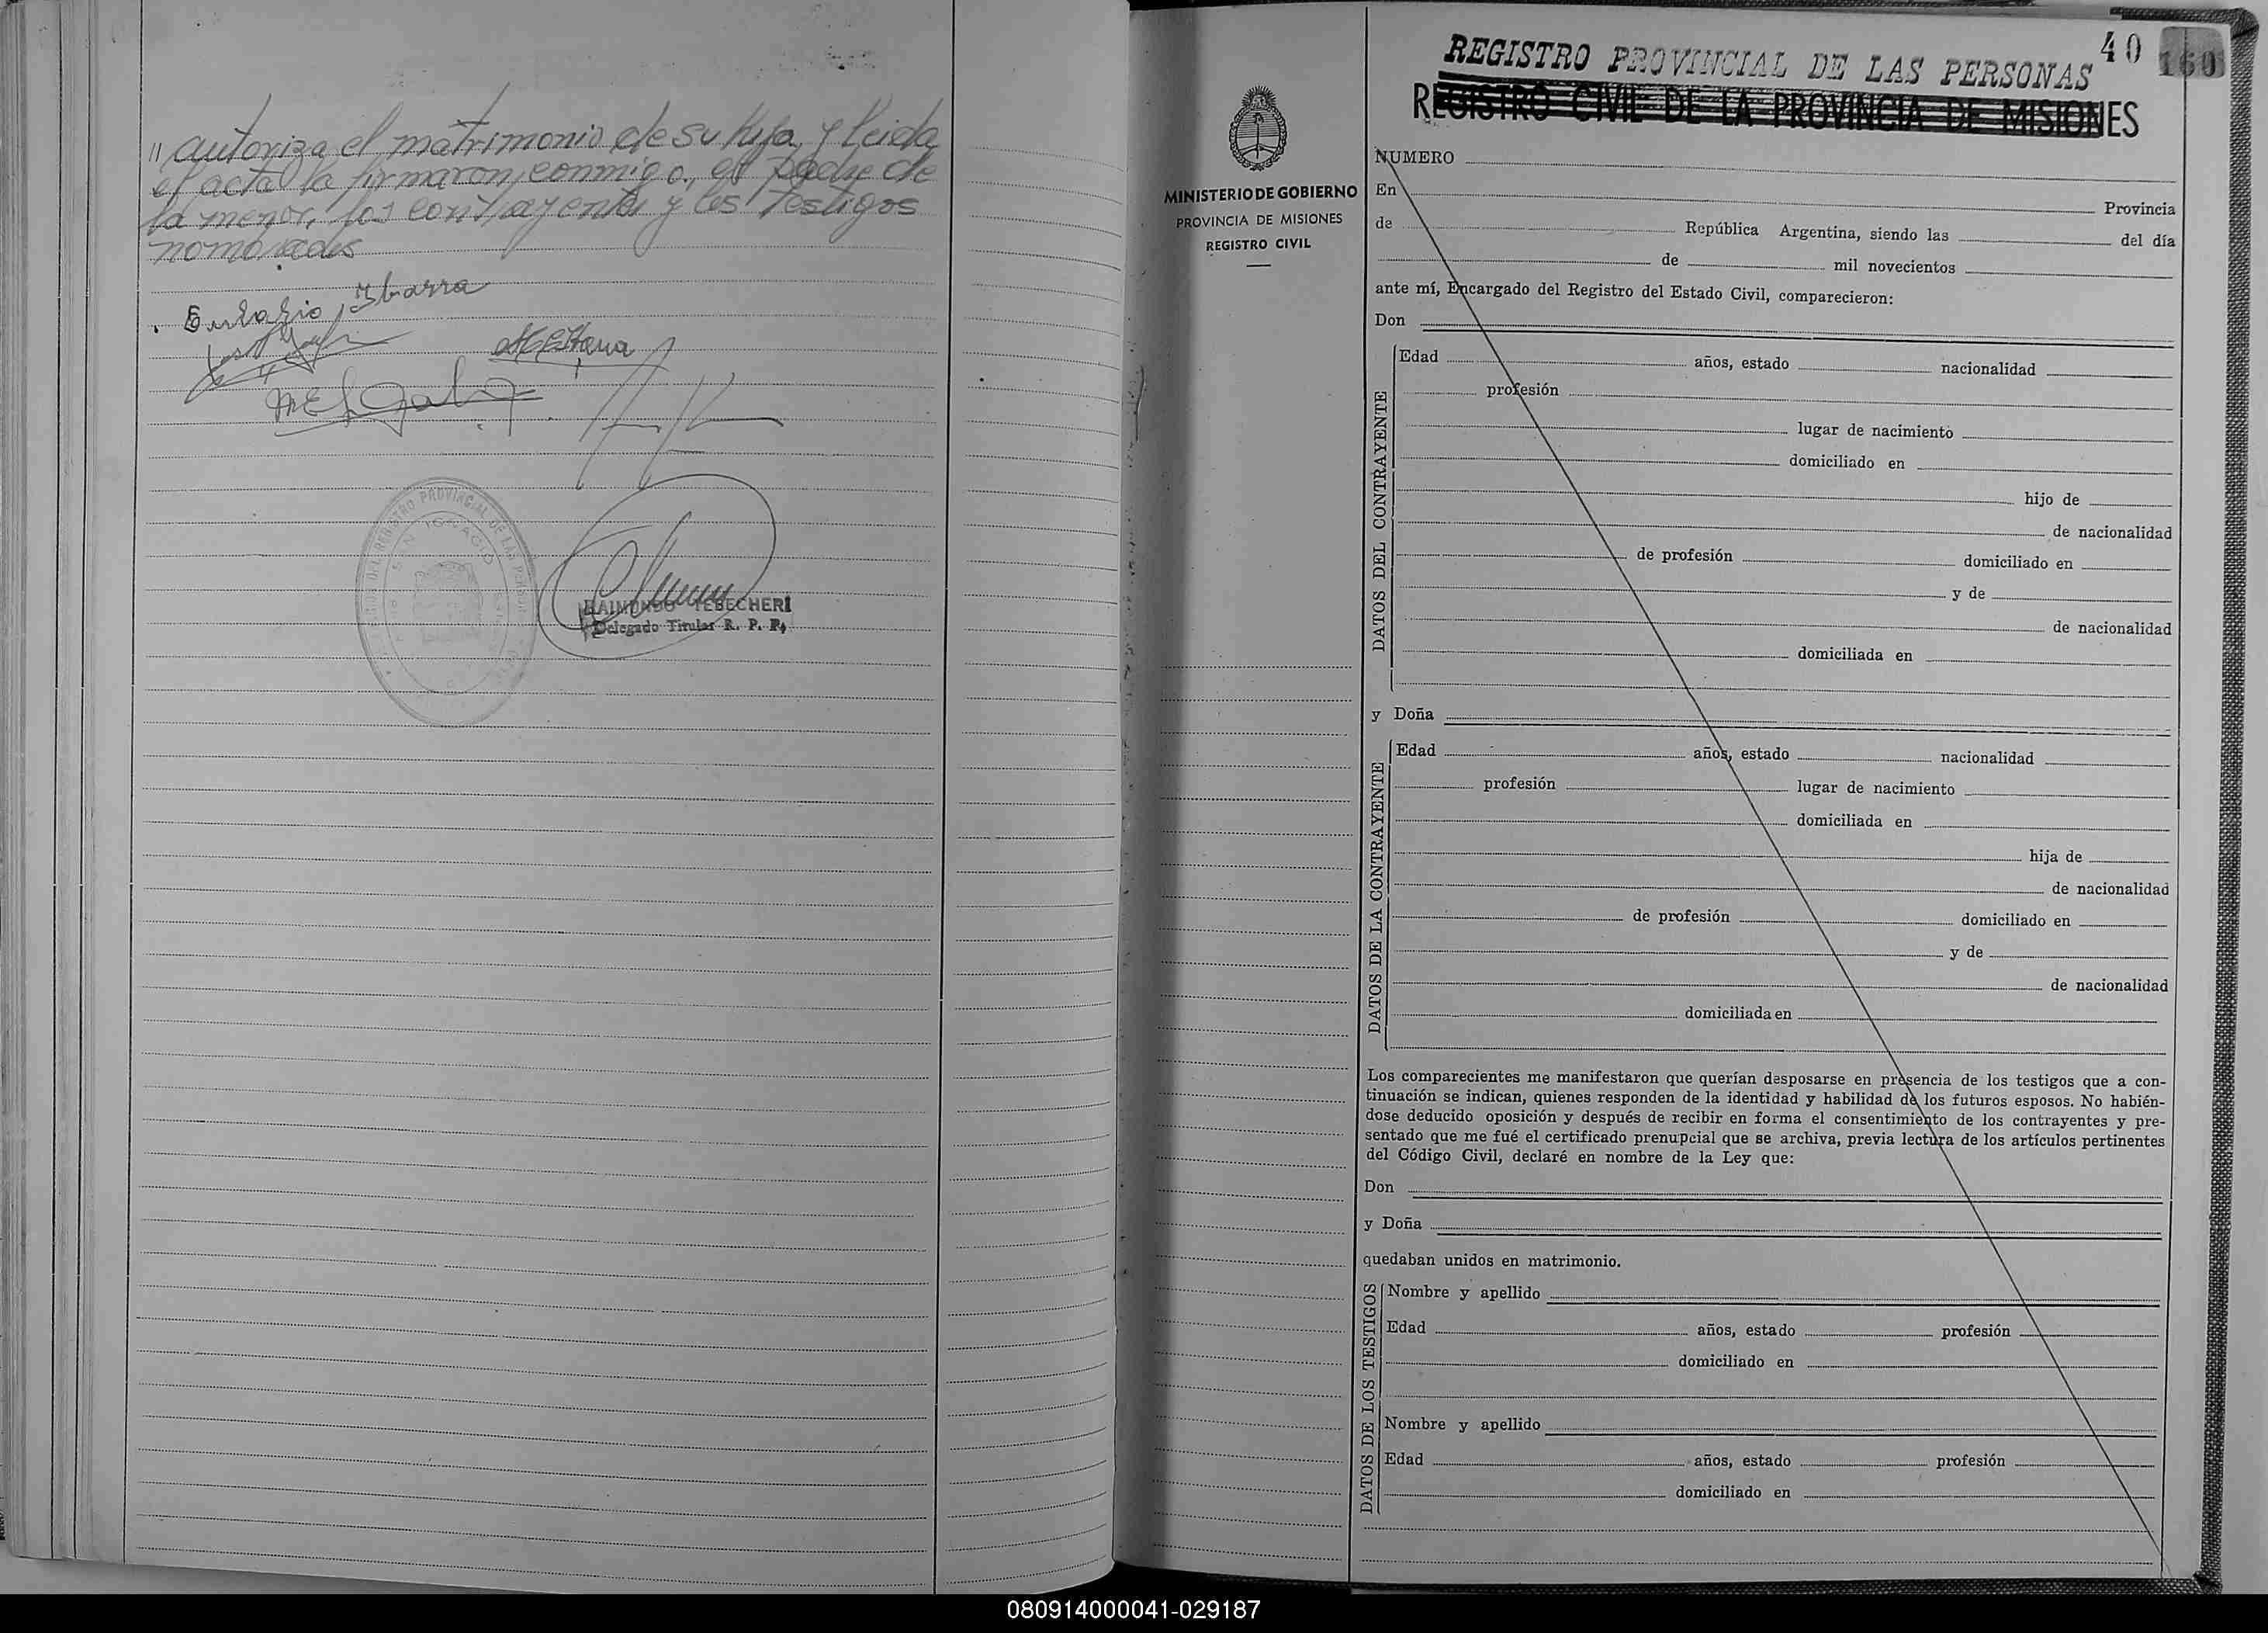 " autoriza el matrimonio de su hija, y leida
el acta la firmaron conmigo, el padre de
la menor, los contrayentes y los testigos
nombrados
Eustasio Ibarra
RAIMUNDO TEBECHERI
Delegado Titular R. P. P.
REGISTRO PROVINCIAL DE LAS PERSONAS
40
160
REGISTRO CIVIL DE LA PROVINCIA DE MISIONES
MINISTERIO DE GOBIERNO
PROVINCIA DE MISIONES
REGISTRO CIVIL
NUMERO
En Provincia
de República Argentina, siendo las del día
de mil novecientos
ante mí, Encargado del Registro del Estado Civil, comparecieron:
Don
DATOS DEL CONTRAYENTE
Edad años, estado nacionalidad
profesión
lugar de nacimiento
domiciliado en
hijo de
de nacionalidad
de profesión domiciliado en
y de
de nacionalidad
domiciliada en
y Doña
DATOS DE LA CONTRAYENTE
Edad años, estado nacionalidad
profesión lugar de nacimiento
domiciliada en
hija de
de nacionalidad
de profesión domiciliado en
y de
de nacionalidad
domiciliada en
Los comparecientes me manifestaron que querían desposarse en presencia de los testigos que a con-
tinuación se indican, quienes responden de la identidad y habilidad de los futuros esposos. No habién-
dose deducido oposición y después de recibir en forma el consentimiento de los contrayentes y pre-
sentado que me fué el certificado prenupcial que se archiva, previa lectura de los artículos pertinentes
del Código Civil, declaré en nombre de la Ley que:
Don
y Doña
quedaban unidos en matrimonio.
DATOS DE LOS TESTIGOS
Nombre y apellido
Edad años, estado profesión
domiciliado en
Nombre y apellido
Edad años, estado profesión
domiciliado en
080914000041-029187